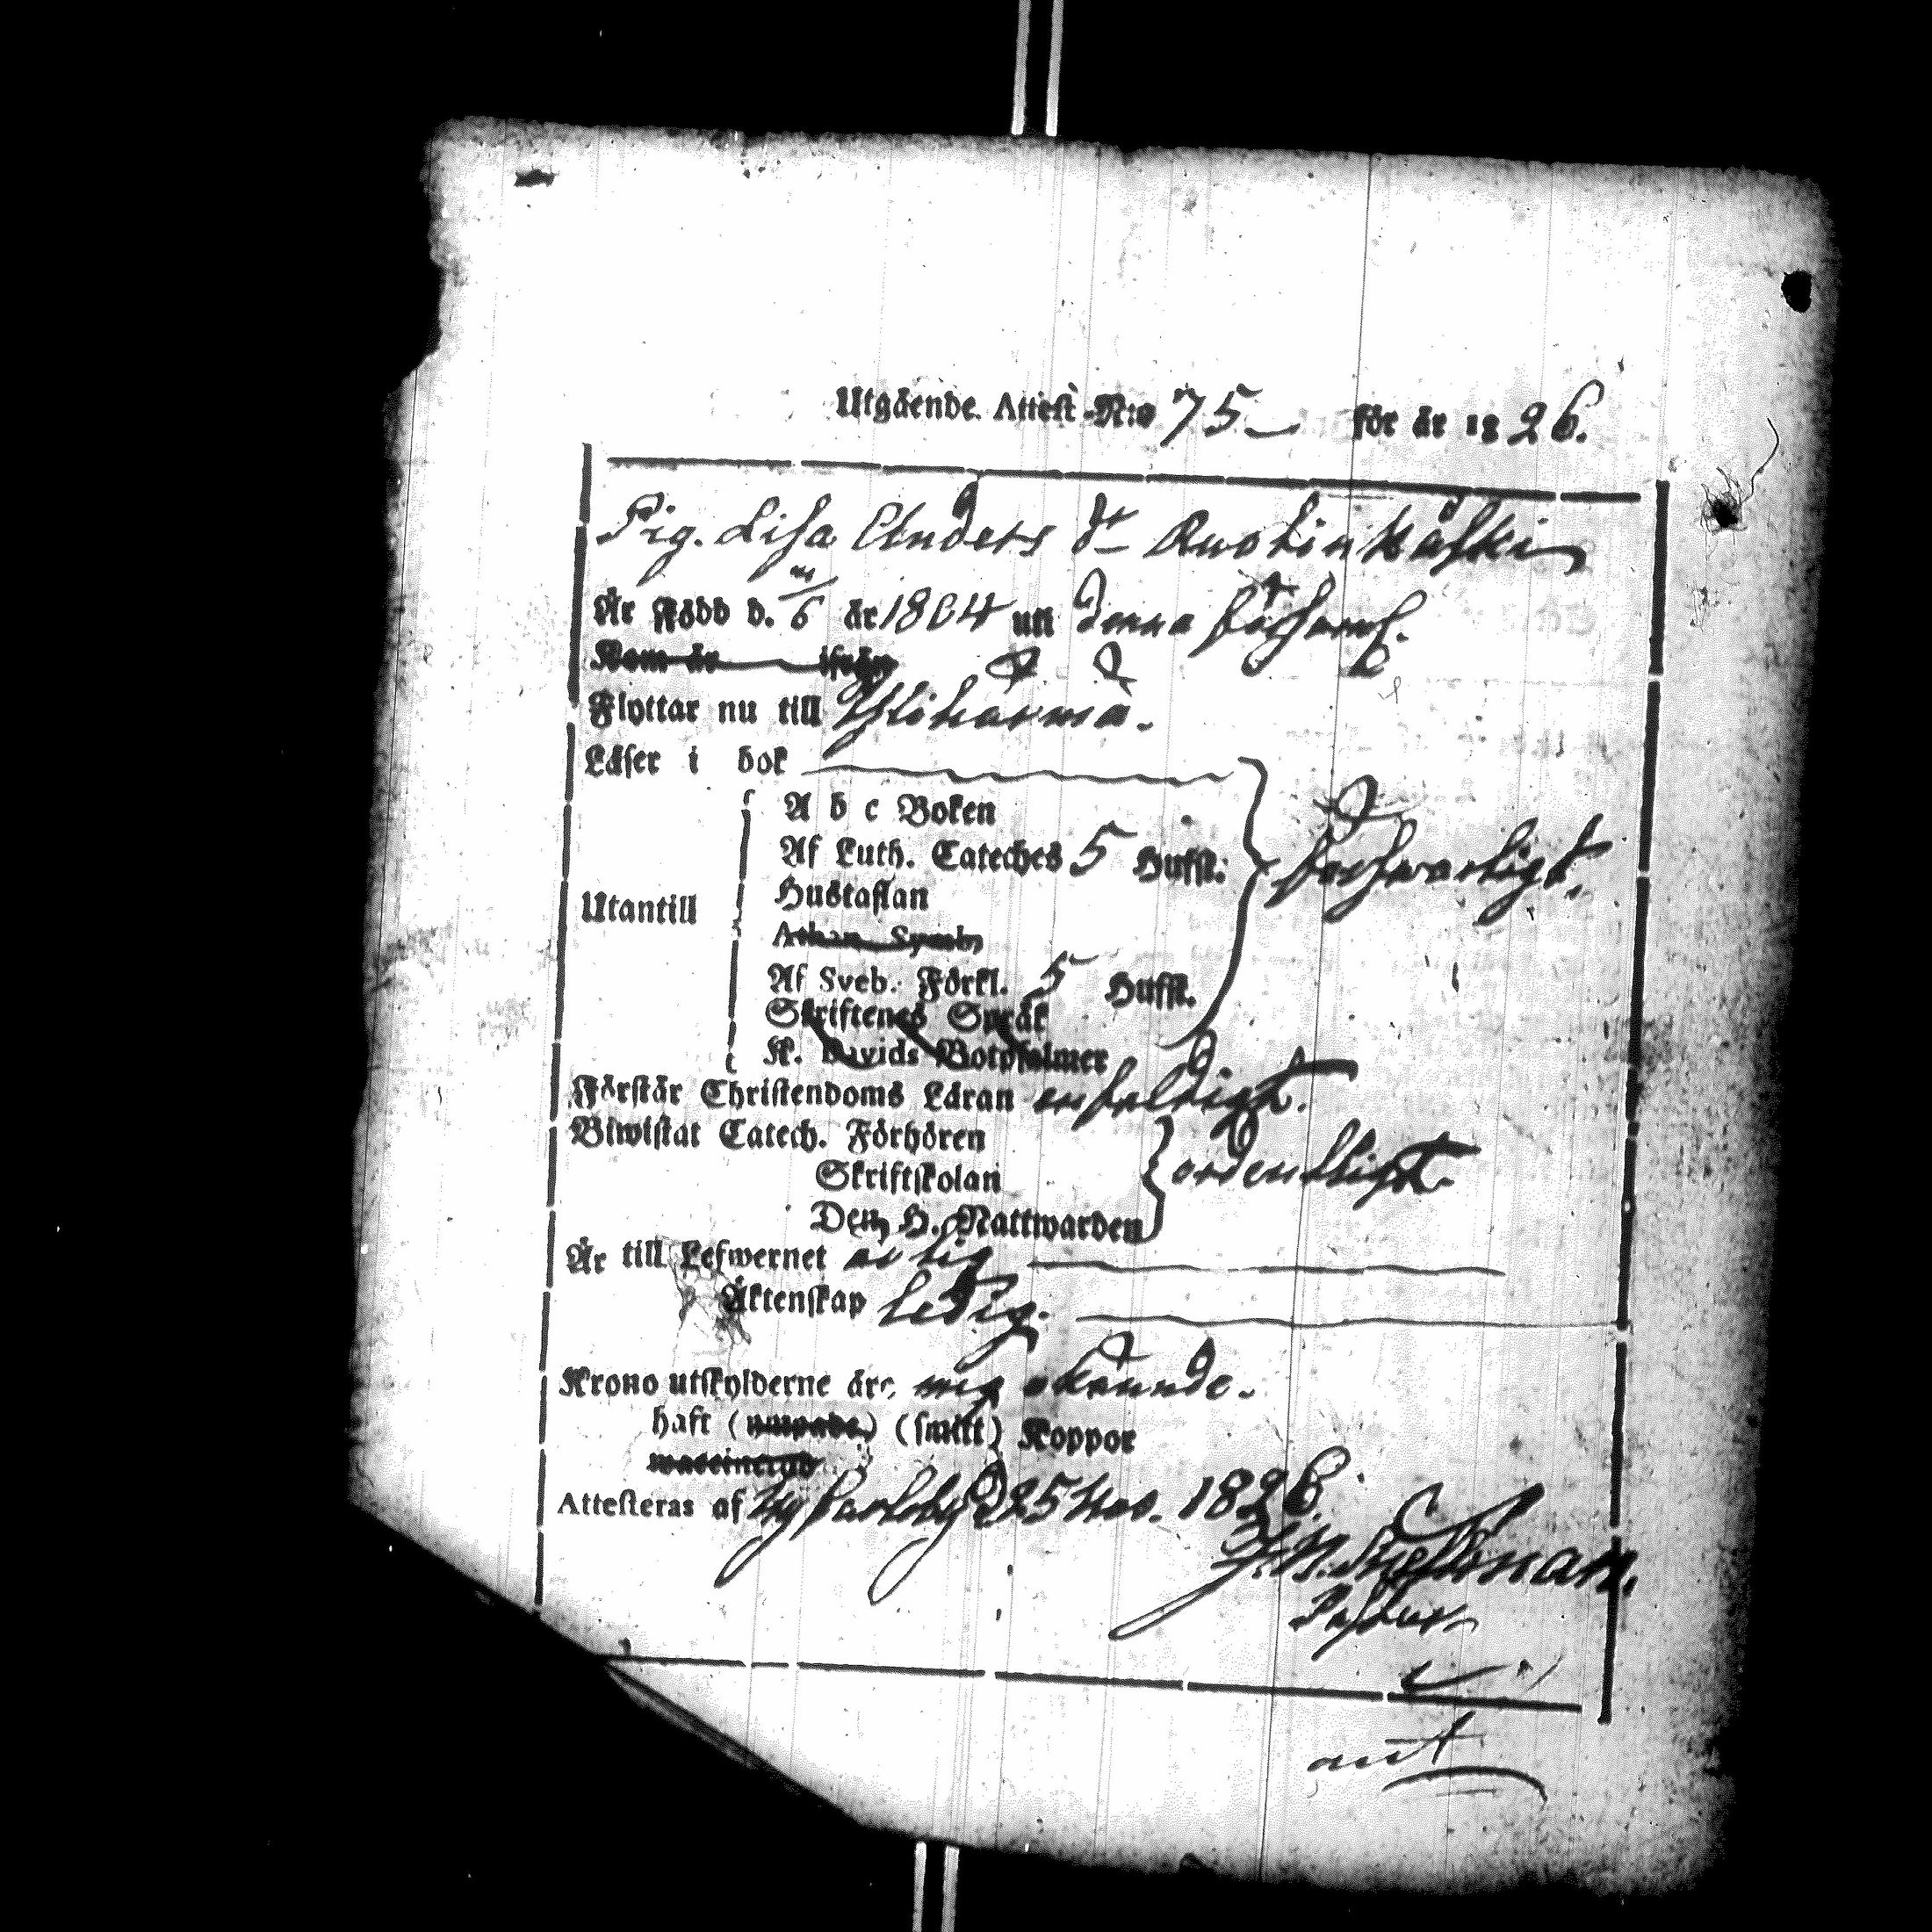 Utgående Attest-N:o 75 för år 1826.
Pig. Lisa Anders dr Ruotsinkoski
Är Född d. /6 år 1804 uti denna församl.
Kom år ifrån
Flyttar nu till Ylihärmä.
Läser i bok
A b c Boken
Af Luth. Cateches 5 Hufst: försvarligt.
Hustaflan
Utantill
Athan. Symb.
Af Sveb. Förkl. 5 Hufst.
Skriftenes Språk
K. Davids Botpsalmer
Förstår Christendoms Läran enfaldigt.
Biwistat Catech. Förhören
Skriftskolan ordentligt.
Den H. Nattwarden
Är till Lefwernet ärlig
Äktenskap ledig.
Krono utskylderne äro mig okunnde.
haft (smitt) Koppor
waccinerad
Attesteras af Nykarleby d 25 Nov. 1826.
Pastor